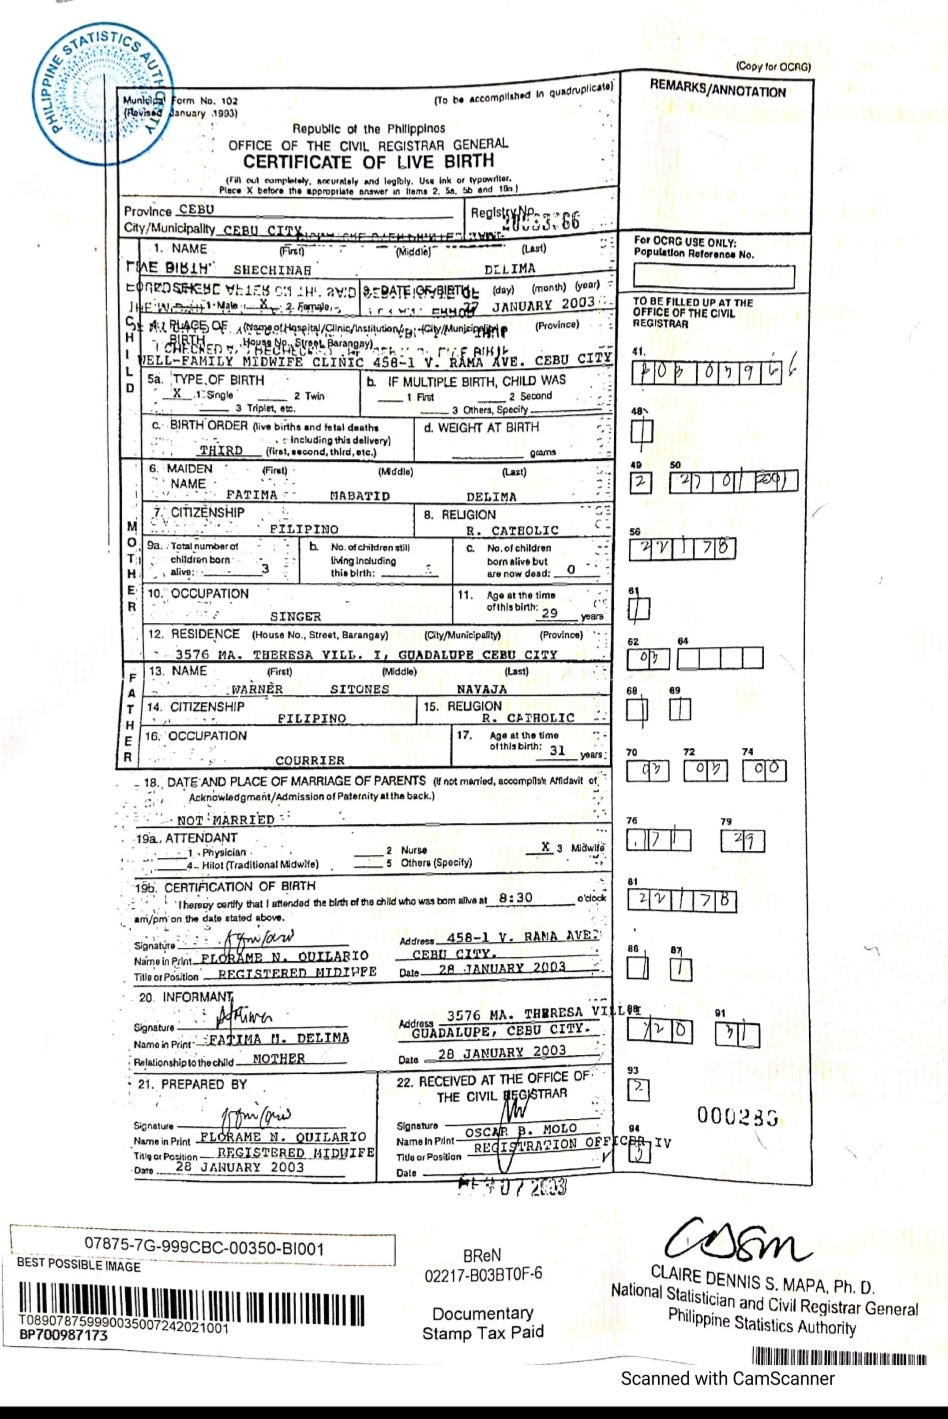 (Copy for OCRG)
PHILIPPINE STATISTICS AUTHORITY
Municipal Form No. 102
(Revised January 1993)
(To be accomplished in quadruplicate)
REMARKS/ANNOTATION
Republic of the Philippines
OFFICE OF THE CIVIL REGISTRAR GENERAL
CERTIFICATE OF LIVE BIRTH
(Fill out completely, accurately and legibly. Use ink or typewriter.
Place X before the appropriate answer in Items 2, 5a, 5b and 19a)
Province CEBU
Registry No.
City/Municipality CEBU CITY
For OCRG USE ONLY:
Population Reference No.
1. NAME (First) (Middle) (Last)
SHECHINAH DELIMA
3. DATE OF BIRTH (day) (month) (year)
1 Male X 2 Female 27 JANUARY 2003
TO BE FILLED UP AT THE
OFFICE OF THE CIVIL
REGISTRAR
CHILD
4. PLACE OF BIRTH (Name of Hospital/Clinic/Institution/ (City/Municipality) (Province)
House No., Street, Barangay)
WELL-FAMILY MIDWIFE CLINIC 458-1 V. RAMA AVE. CEBU CITY
41.
5a. TYPE OF BIRTH
X 1 Single 2 Twin
3 Triplet, etc.
b. IF MULTIPLE BIRTH, CHILD WAS
1 First 2 Second
3 Others, Specify
48
c. BIRTH ORDER (live births and fetal deaths
including this delivery)
THIRD (first, second, third, etc.)
d. WEIGHT AT BIRTH
grams
49 50
2
MOTHER
6. MAIDEN NAME (First) (Middle) (Last)
FATIMA MABATID DELIMA
7. CITIZENSHIP
FILIPINO
8. RELIGION
R. CATHOLIC
56
22178
9a. Total number of
children born
alive: 3
b. No. of children still
living including
this birth:
c. No. of children
born alive but
are now dead: 0
10. OCCUPATION
SINGER
11. Age at the time
of this birth: 29 years
61
12. RESIDENCE (House No., Street, Barangay) (City/Municipality) (Province)
3576 MA. THERESA VILL. I, GUADALUPE CEBU CITY
62 64
03
FATHER
13. NAME (First) (Middle) (Last)
WARNER SITONES NAVAJA
14. CITIZENSHIP
FILIPINO
15. RELIGION
R. CATHOLIC
68 69
16. OCCUPATION
COURRIER
17. Age at the time
of this birth: 31 years
70 72 74
03 03 00
18. DATE AND PLACE OF MARRIAGE OF PARENTS (If not married, accomplish Affidavit of
Acknowledgment/Admission of Paternity at the back.)
NOT MARRIED
76 79
171 29
19a. ATTENDANT
1 Physician 2 Nurse X 3 Midwife
4 Hilot (Traditional Midwife) 5 Others (Specify)
19b. CERTIFICATION OF BIRTH
I hereby certify that I attended the birth of the child who was born alive at 8:30 o'clock
am/pm on the date stated above.
81
22178
Signature
Name in Print FLORAME N. QUILARIO
Title or Position REGISTERED MIDIWFE
Address 458-1 V. RAMA AVE.
CEBU CITY.
Date 28 JANUARY 2003
86 87
20. INFORMANT
Signature
Name in Print FATIMA M. DELIMA
Relationship to the child MOTHER
Address 3576 MA. THERESA VILL
GUADALUPE, CEBU CITY.
Date 28 JANUARY 2003
88 91
120 31
21. PREPARED BY
Signature
Name in Print FLORAME N. QUILARIO
Title or Position REGISTERED MIDWIFE
Date 28 JANUARY 2003
22. RECEIVED AT THE OFFICE OF
THE CIVIL REGISTRAR
Signature
Name in Print OSCAR B. MOLO
Title or Position REGISTRATION OFFICER IV
Date
07 2003
93
2
000285
94
3
07875-7G-999CBC-00350-BI001
BEST POSSIBLE IMAGE
T08907875999003507242021001
BP700987173
BReN
02217-B03BT0F-6
Documentary
Stamp Tax Paid
CLAIRE DENNIS S. MAPA, Ph. D.
National Statistician and Civil Registrar General
Philippine Statistics Authority
Scanned with CamScanner